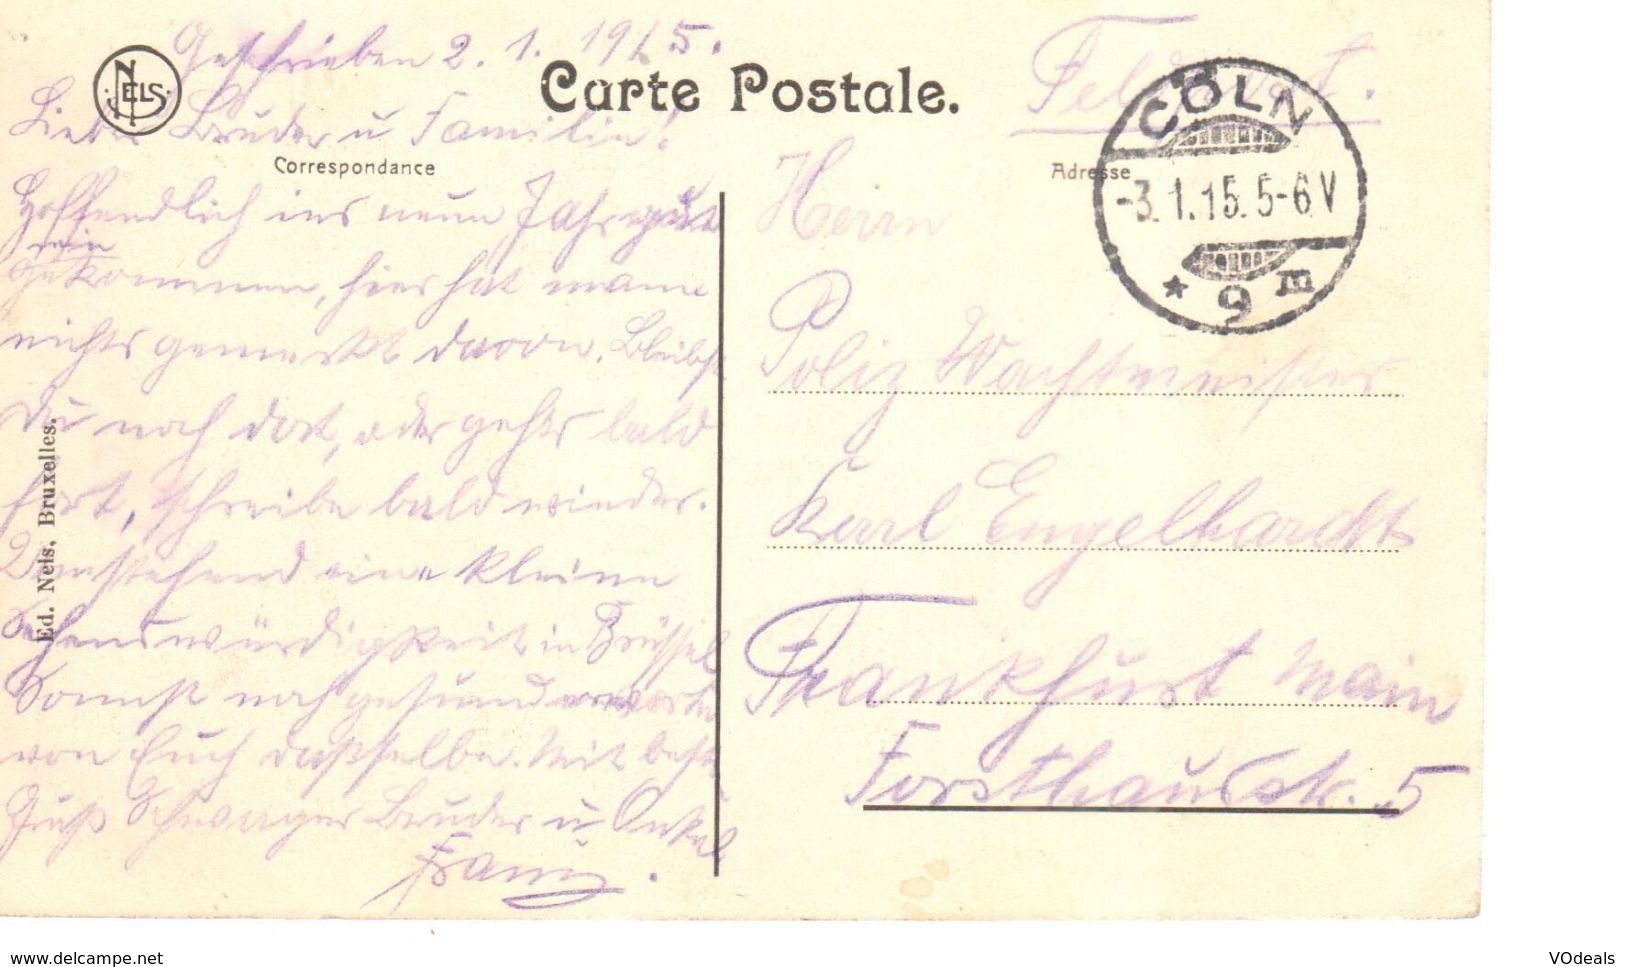 Geschrieben 2. 1. 1915.
NELS
Carte Postale.
Feldpost.
Lieber Bruder u Familie!
Correspondance
Adresse
CÖLN
-3.1.15.5-6V
* 9 m
Hoffendlich ins neue Jahr gut
rein
gekommen, hier hat mann
nichts gemerkt davon. Bleibst
Du noch dort, oder gehts bald
fort, schreibe bald wieder.
Umstehend eine kleine
Sehenswürdigkeit in Brüssel
Sonnst noch gesund erwarte
von Euch dasselbe. Mit beste
Gruß Schwager Bruder u Onkel
Franz.
Herrn
Poliz Wachtmeister
Karl Engelhardt
Frankfurt Main
Forsthausstr. 5
Ed. Nels, Bruxelles.
www.delcampe.net
VOdeals